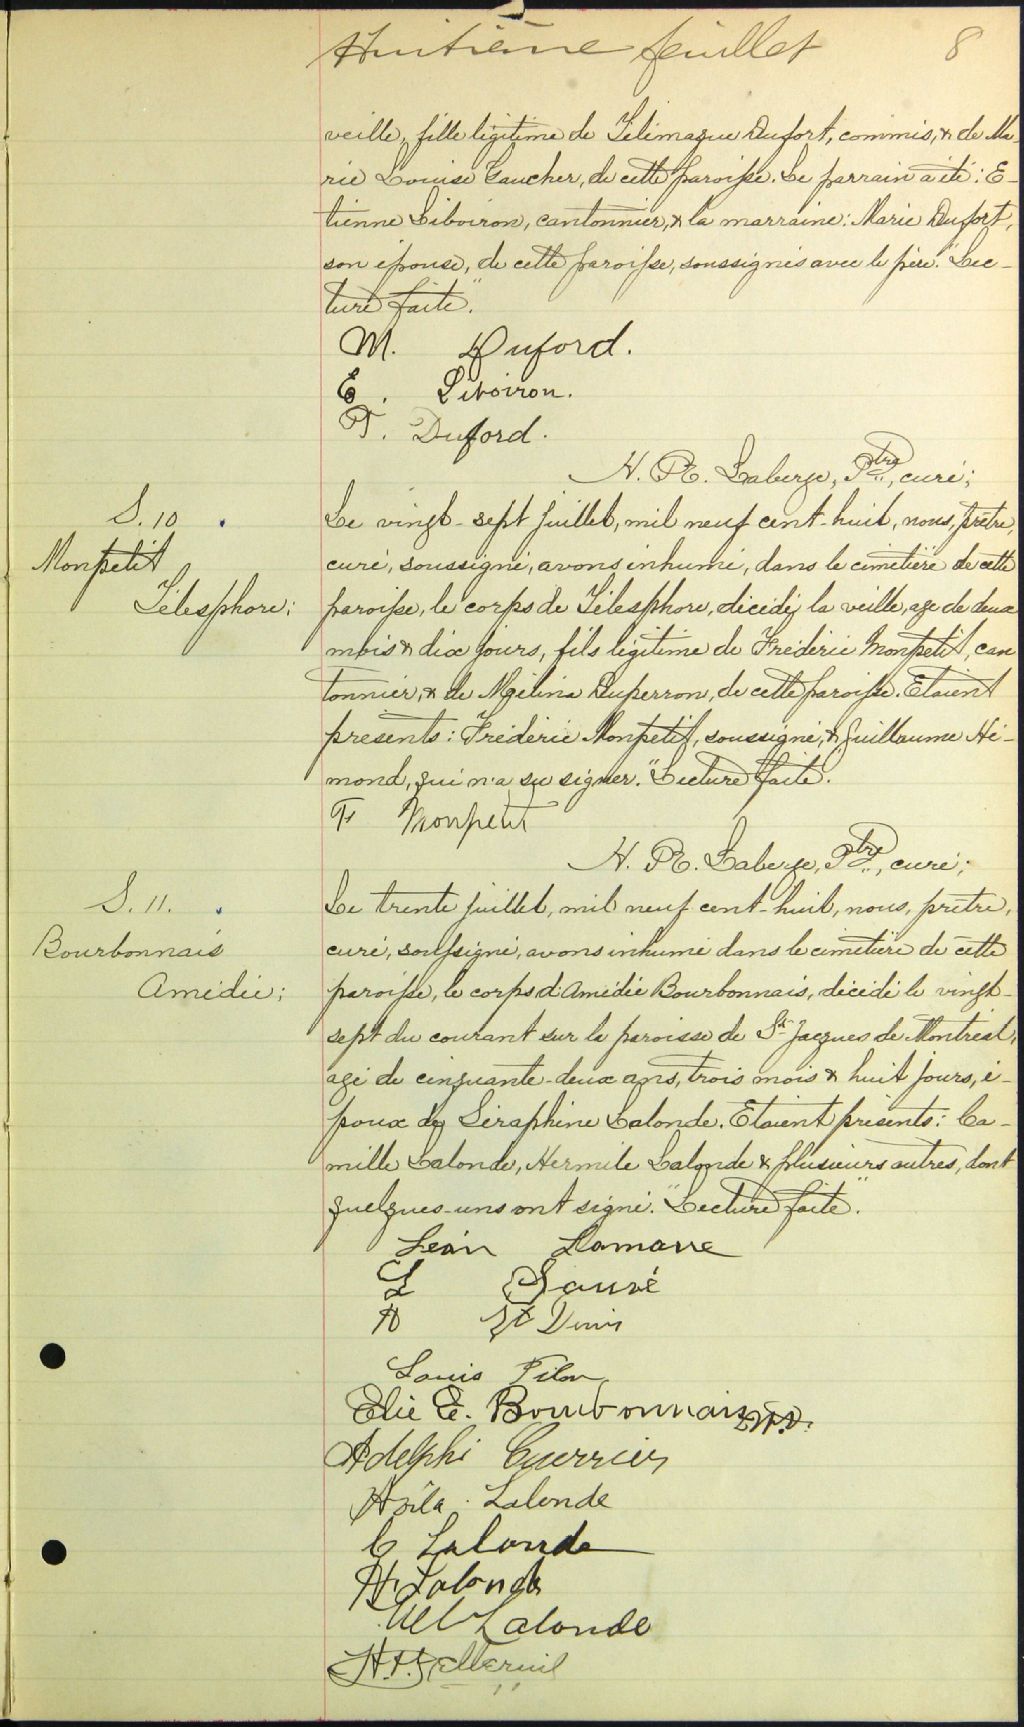 Huitième feuillet 8
veille, fille légitime de Télémaque Dufort, commis, & de Ma-
rie Louise Gaucher, de cette paroisse. Le parrain a été: E-
tienne Liboiron, cantonnier, & la marraine: Marie Dufort,
son épouse, de cette paroisse, soussignés avec le père. "Lec-
ture faite".
M. Duford.
E. Liboiron.
T. Duford.
H. Laberge, Ptre, curé;
S. 10
Monpetit
Télesphore;
Le vingt-sept juillet, mil neuf cent-huit, nous, prêtre,
curé, soussigné, avons inhumé, dans le cimetière de cette
paroisse, le corps de Télesphore, décédé la veille, age de deux
mois & dix jours, fils légitime de Frédéric Monpetit, can
tonnier, & de Mélina Duperron, de cette paroisse. Etaient
présents: Frédéric Monpetit, soussigné, & Guillaume Hé-
mond, qui n'a su signer. "Lecture faite".
F Monpetit
H. Laberge, Ptre, curé;
S. 11.
Bourbonnais
Amédée;
Le trente juillet, mil neuf cent-huit, nous, prêtre,
curé, soussigné, avons inhumé dans le cimetière de cette
paroisse, le corps d'Amédée Bourbonnais, décédé le vingt-
sept du courant sur la paroisse de St Jacques de Montréal,
agé de cinquante-deux ans, trois mois & huit jours, é-
poux de Séraphine Lalonde. Etaient présents: Ca-
mille Lalonde, Hermile Lalonde & plusieurs autres, dont
quelques-uns ont signé. "Lecture faite".
Léan Lamarre
L Sauvé
A St Denis
Louis Filon
Elie E. Bourbonnais
Adelphi Cuerrier
Asila Lalonde
C Lalonde
H. Lalonde
Lalonde